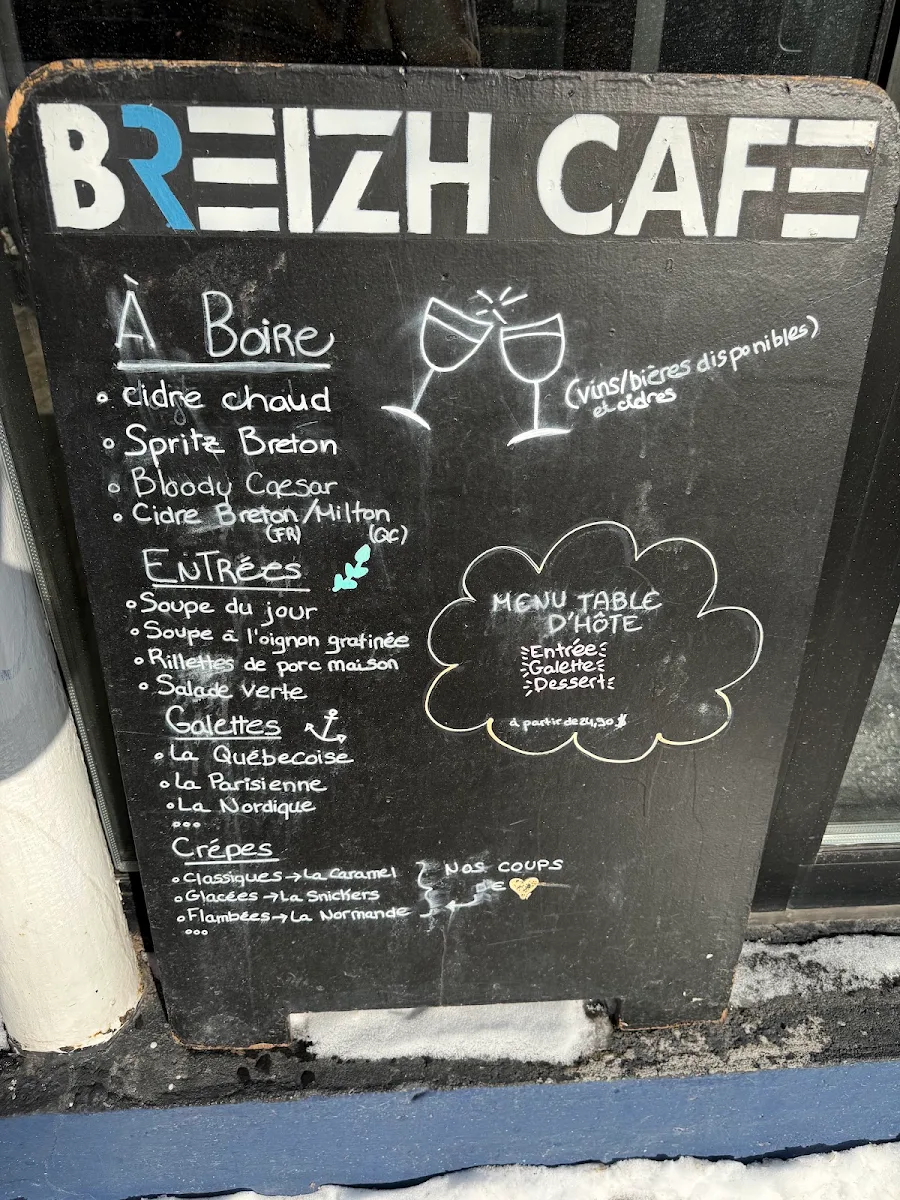 BREIZH CAFE
À Boire
• cidre chaud
• Spritz Breton
• Bloody Caesar
• Cidre Breton/Milton
(FR) (QC)
(vins/bières disponibles)
et cidres
ENTRées
• Soupe du jour
• Soupe à l'oignon gratinée
• Rillettes de porc maison
• Salade verte
MENU TABLE
D'HÔTE
Entrée
Galette
Dessert
à partir de 24,90 $
Galettes
• La Québecoise
• La Parisienne
• La Nordique
...
Crêpes
• Classiques → La Caramel
• Glacées → La Snickers
• Flambées → La Normande
...
NOS COUPS
DE